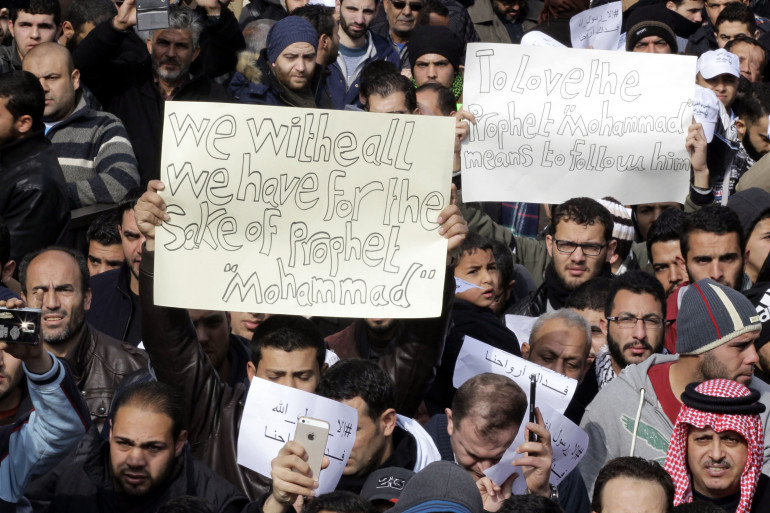 we withe all
we have for the
sake of prophet
"Mohammad"
To love the
Prophet "Mohammad"
means to follow him
فداك أرواحنا
#إلا رسول الله